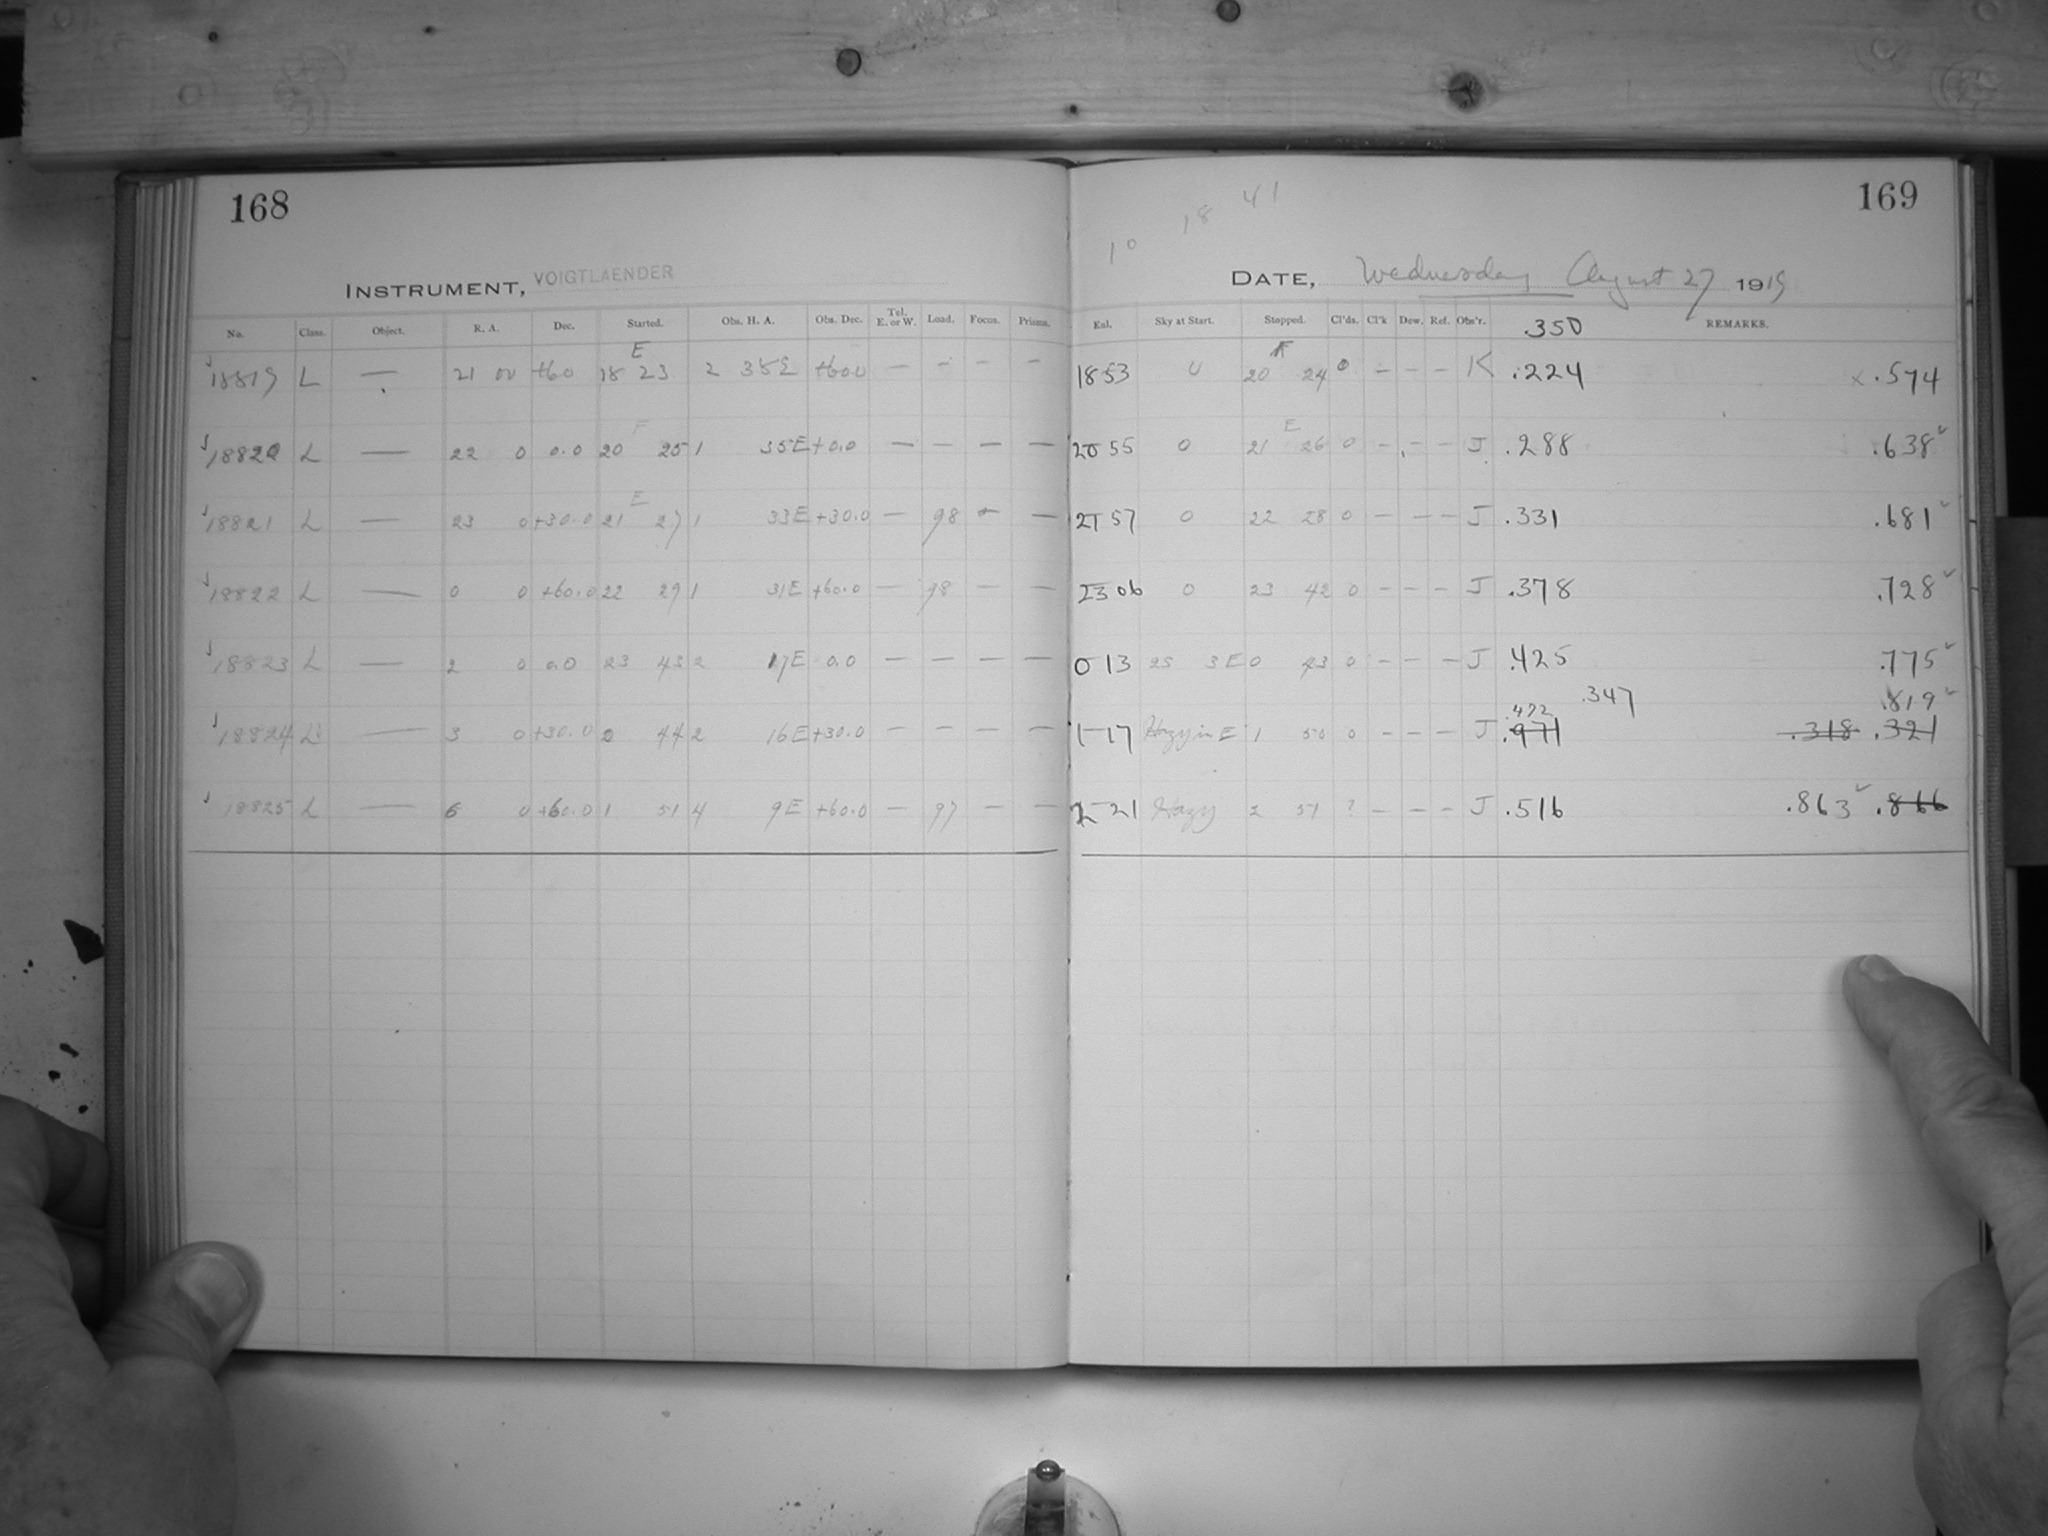 168
INSTRUMENT, VOIGTLAENDER
No. Class. Object. R. A. Dec. Started. Obs. H. A. Obs. Dec. Tel. E. or W. Load. Focus. Prisms.
E
18819 L — 21 00 +60 18 23 2 35E +600 — - — —
18820 L — 22 0 0.0 20 25 1 35E +0.0 — — — —
E
18821 L — 23 0 +30.0 21 27 1 33E +30.0 — 98 — —
18822 L — 0 0 +60.0 22 29 1 31E +60.0 — 98 — —
18823 L — 2 0 0.0 23 43 2 17E 0.0 — — — —
18824 L — 3 0 +30.0 0 44 2 16E +30.0 — — — —
18825 L — 6 0 +60.0 1 51 4 9E +60.0 — 97 — —
169
10 18 41
DATE, Wednesday August 27 1919
Exl. Sky at Start. Stopped. Cl'ds. Cl'k Dew. Ref. Obs'r. .350 REMARKS.
1853 0 20 24 0 - - - K .224 x .574
E
20 55 0 21 26 0 - - - J .288 .638 ✓
21 57 0 22 28 0 - - - J .331 .681 ✓
23 06 0 23 42 0 - - - J .378 .728 ✓
0 13 25 3E 0 43 0 - - - J .425 .775 ✓
.472 .347 .819 ✓
1 17 Hazy in E 1 50 0 - - - J .971 .318 .321
2 21 Hazy 2 51 ? - - - J .516 .863 ✓ .866